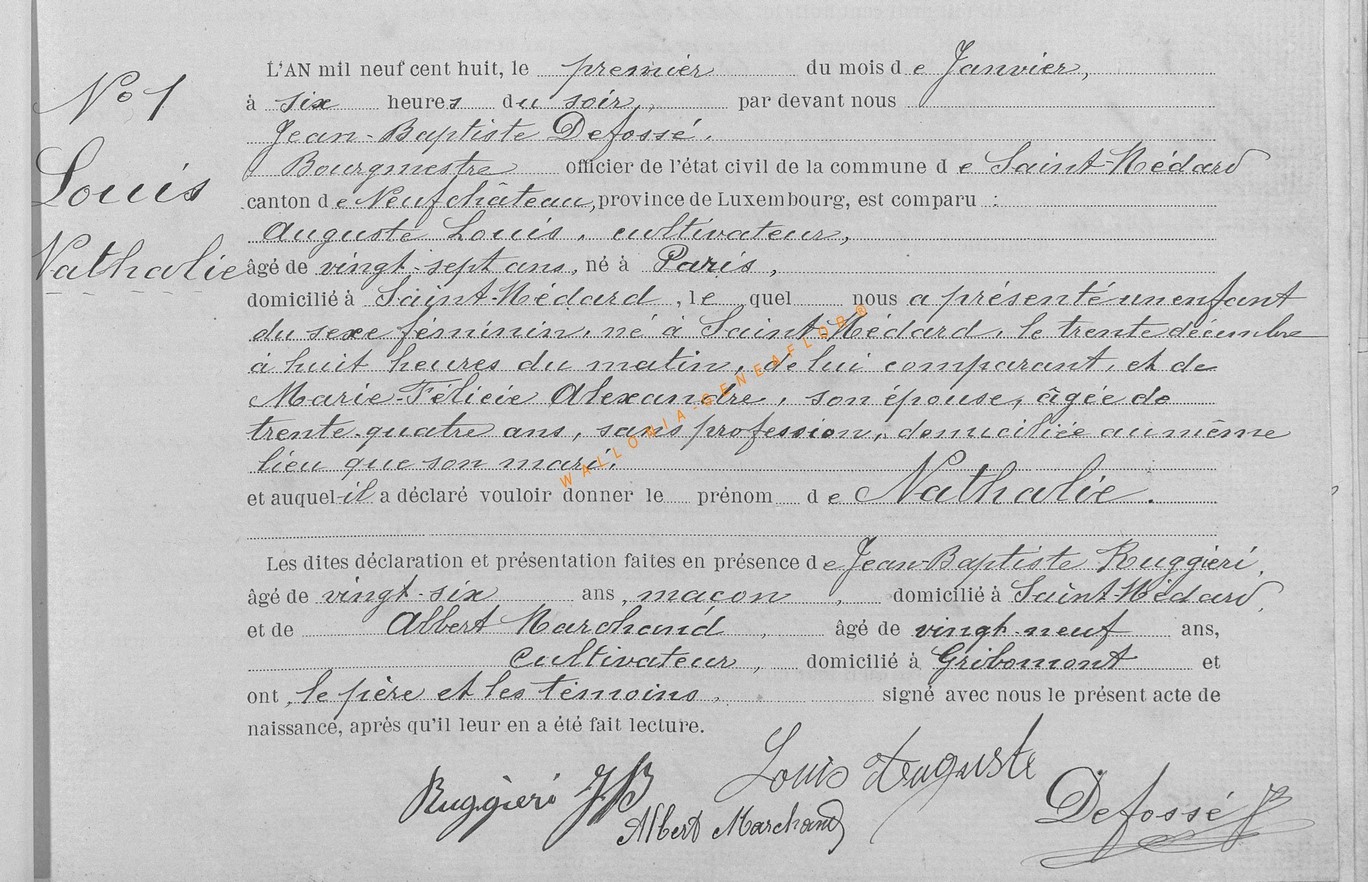 N° 1
Louis
Nathalie
L'AN mil neuf cent huit, le premier du mois de Janvier,
à six heures du soir, par devant nous
Jean-Baptiste Defossé.
Bourgmestre officier de l'état civil de la commune de Saint-Médard
canton de Neufchâteau, province de Luxembourg, est comparu :
Auguste Louis, cultivateur,
âgé de vingt-sept ans, né à Paris,
domicilié à Saint-Médard, lequel nous a présenté un enfant
du sexe féminin, né à Saint-Médard, le trente décembre
à huit heures du matin, de lui comparant, et de
Marie-Félicie Alexandre, son épouse, âgée de
trente-quatre ans, sans profession, domiciliée au même
lieu que son mari.
et auquel il a déclaré vouloir donner le prénom de Nathalie.
Les dites déclaration et présentation faites en présence de Jean-Baptiste Ruggieri,
âgé de vingt-six ans, maçon, domicilié à Saint-Médard,
et de Albert Marchand, âgé de vingt-neuf ans,
cultivateur, domicilié à Gribomont et
ont, le père et les témoins, signé avec nous le présent acte de
naissance, après qu'il leur en a été fait lecture.
Ruggièri JB Louis Auguste
Albert Marchand Defossé JB
WALLONIA-GENEAFLOBO